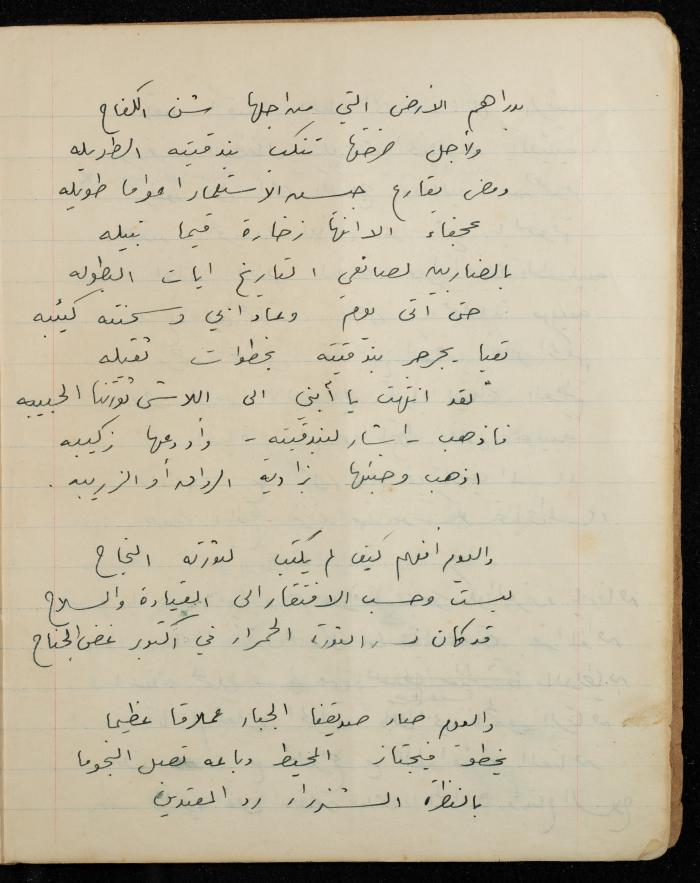 بدراهم الأرض التي من اجلها شن الكفاح
ولأجل تنكب بندقيته الطويله
ومضى يقارع الاستعمار اعواما طويله
عجفاء الا انها زخارة قيما نبيله
بالضاربين لصانعي التاريخ ايات البطوله
حتى أتى يوم وعاد ابي وسحنته كئيبه
تعبا يجرجر بندقيته بخطوات ثقيله
"لقد انتهت يا أبني الى اللاشئ ثورتنا الحبيبه
فاذهب - اشار لبندقيته - وأودعها زكيبه
اذهب وخبئها بزاوية أو الزريبه .
واليوم أفهم كيف لم يكتب لثورته النجاح
ليست وحسب الافتقار الى القيادة والسلاح
قد كان الثورة الحمراء في أكتوبر غض الجناح
واليوم صار صديقنا الجبار عملاقا عظيما
يخطو فيجتاز المحيط وباعه تصل النجوما
بالنظرة الشزراء رد المعتدين